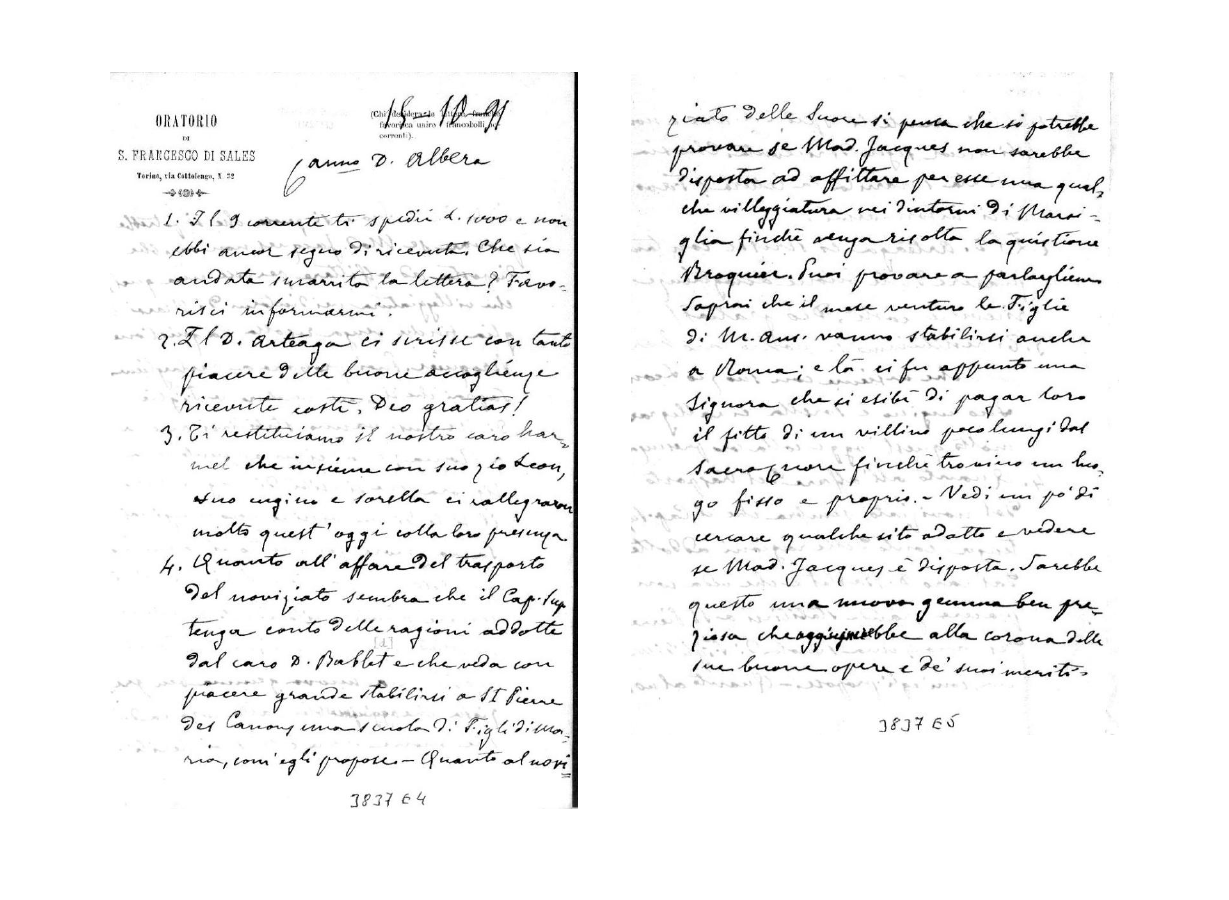 ORATORIO
DI
S. FRANCESCO DI SALES
Torino, via Cottolengo, N. 32
(Chi desidera la
favorisca unire francobolli
correnti).
16-10-91
Carmo D. Albera
1. Il 9 corrente ti spedii L. 1000 e non
ebbi ancor segno di ricevuta. Che sia
andata smarrita la lettera? Favo-
risci informarmi.
2. Il D. Arteaga ci scrisse con tanto
piacere delle buone accoglienze
ricevute costì. Deo gratias!
3. Ti restituiamo il nostro caro Har-
mel che insieme con suo zio Leon,
suo cugino e sorella ci rallegraron
molto quest'oggi colla loro presenza
4. Quanto all'affare del trasporto
del noviziato sembra che il Cap. Sup
tenga conto delle ragioni addotte
dal caro D. Bablet e che veda con
piacere grande stabilirsi a St Pierre
des Canons una scuola di Figli di Ma-
ria, com'egli propose. - Quanto al novi
3837 E 4
ziato delle Suore si pensa che si potrebbe
provare se Mad. Jacques non sarebbe
disposta ad affittare per esse una qual-
che villeggiatura nei dintorni di Marsi-
glia finchè venga risolta la quistione
Broquier. Puoi provare a parlargliene
Saprai che il mese venturo le Figlie
di M. Aus. vanno stabilirsi anche
a Roma; e là ci fu appunto una
Signora che si esibì di pagar loro
il fitto di un villino poco lungi dal
Sacro Cuore finchè trovino un luo-
go fisso e proprio. - Vedi un po' di
cercare qualche sito adatto e vedere
se Mad. Jacques è disposta. Sarebbe
questo una nuova gemma ben pre-
ziosa che aggiungerebbe alla corona delle
sue buone opere e de' suoi meriti.
3837 E 5